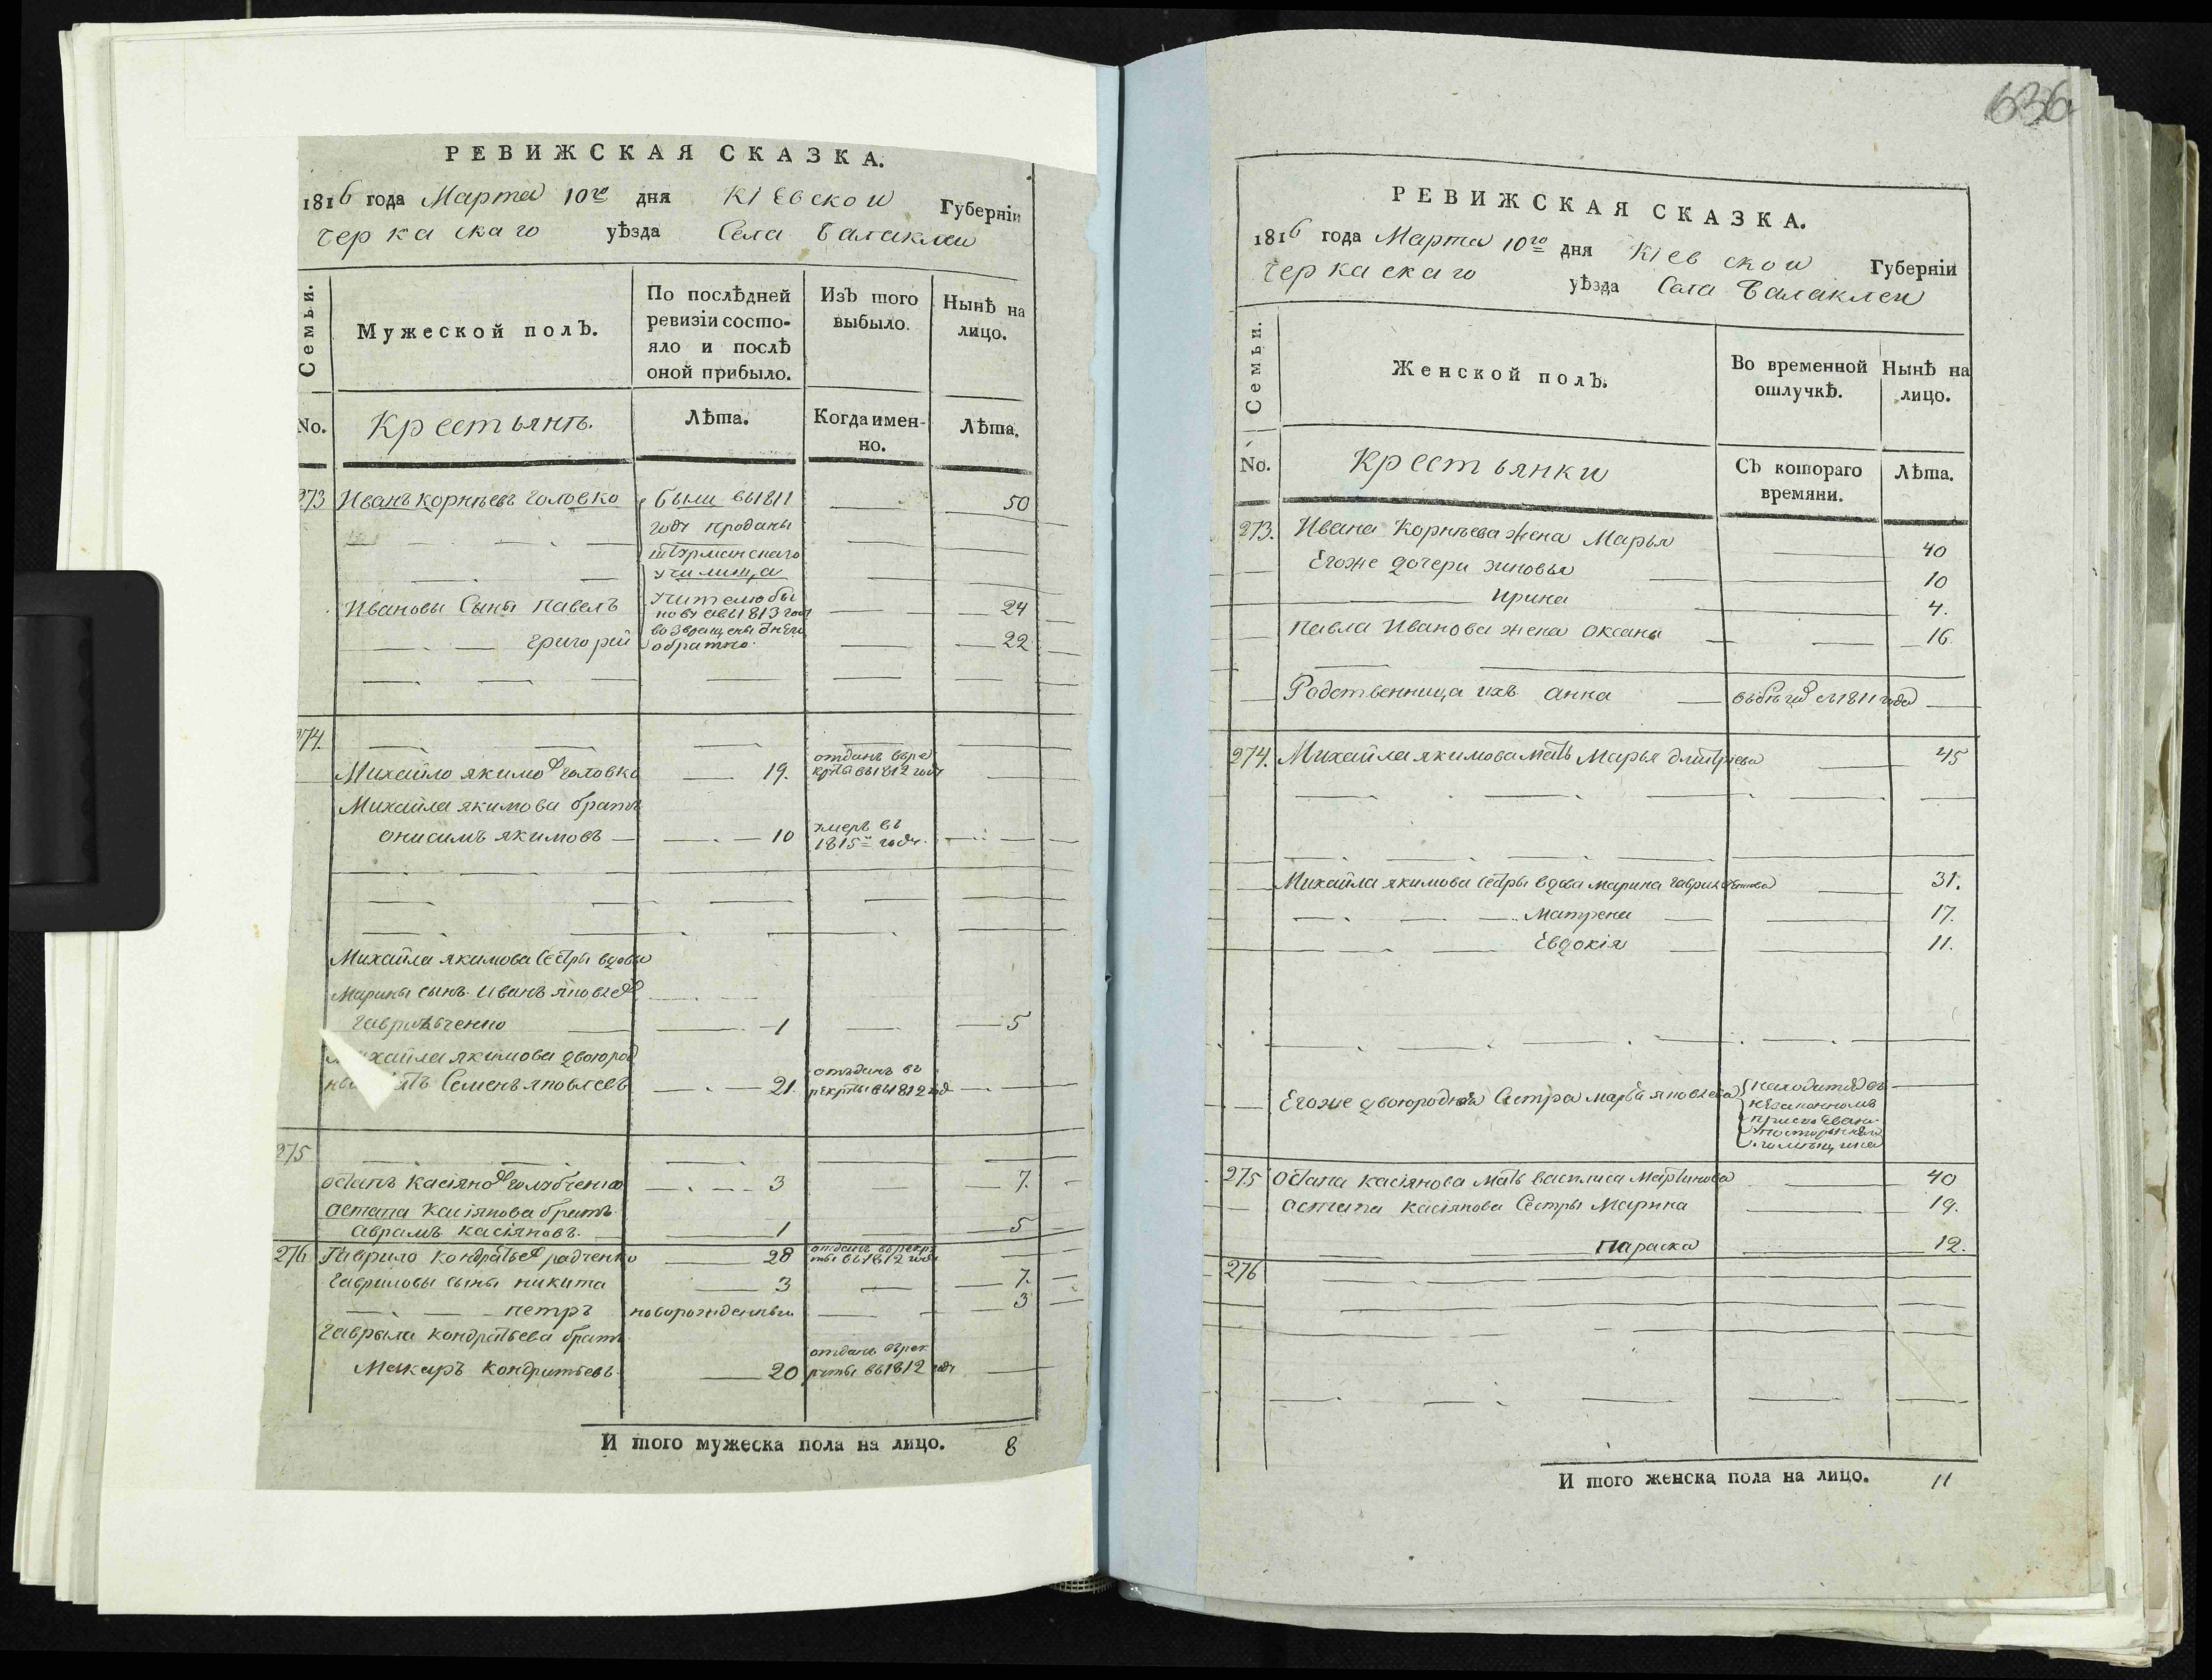 РЕВИЖСКАЯ СКАЗКА.
1816 года Марта 10го дня Кіевской Губерніи
Черкаскаго уѣзда Села Балаклеи
Семьи.
Мужеской полъ.
По послѣдней ревизіи состо-
яло и послѣ
оной прибыло.
Изъ того
выбыло.
Нынѣ на
лицо.
No.
Крестьянъ.
Лѣта.
Когда имен-
но.
Лѣта.
273 Иванъ Корнѣевъ Головко были въ 1811 50
году проданы
штурманскаго
училища
Ивановы сыны Павелъ учителю 24
въ 1813 году
возвращены
Григорій обратно. 22
274.
Михайло Якимов Головко 19. отданъ въ ре
круты въ 1812 году
Михайла Якимова братъ
Онисимъ Якимовъ 10 умеръ въ
1815м году.
Михайла Якимова сестры вдовы
Марины сынъ Иванъ Яковлев
Гавриленко 1 5
Михайла Якимова двоюрод
Семенъ Яковлевъ 21. отданъ въ
рекруты въ 1812 год
275
Остапъ Касіянов Голубченко 3 7.
Остапа Касіянова братъ
Аврамъ Касіяновъ. 1 5
276 Гаврило Кондратьев Радченко 28 отданъ въ рекр
уты въ 1812 году
Гавриловы сыны Никита 3 7.
Петръ новорожденный 3
Гаврыла Кондратьева братъ
Макаръ Кондратьевъ 20 отданъ въ рек
руты въ 1812 году
И того мужеска пола на лицо. 8
636
РЕВИЖСКАЯ СКАЗКА.
1816 года Марта 10го дня Кіевской Губерніи
Черкаскаго уѣзда Села Балаклеи
Семьи.
Женской полъ.
Во временной
отлучкѣ.
Нынѣ на
лицо.
No.
Крестьянки
Съ котораго
времяни.
Лѣта.
273. Ивана Корнѣева жена Марья 40
Егоже дочери Зиновья 10
Ирина 4.
Павла Иванова жена Оксана 16.
Родственница ихъ Анна въ бѣгах с 1811 года
274. Михайла Якимова мать Марья Дмитріева 45
Михайла Якимова сестры вдова Марина 31.
Матрена 17.
Евдокія 11.
Егоже двоюродная сестра Марья Яковлева находится въ
275 Остапа Касіянова мать Василиса Мартинова 40
Остапа Касіянова сестры Марина 19.
Параска 12.
276
И того женска пола на лицо. 11